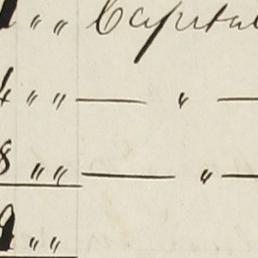 " " Capital
4 " " — " —
8 " " — " —
" "